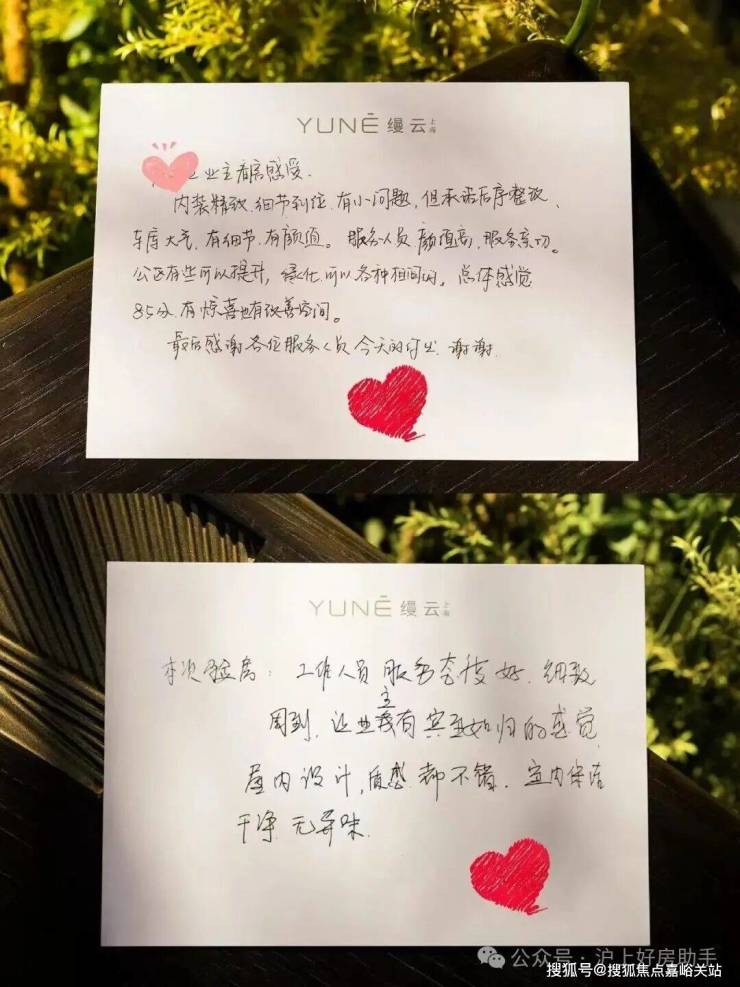 YUNĒ 缦云上海
业主看房感受.
内装精致.细节到位.有小问题,但承诺后序整改、
车库大气.有细节.有颜值。服务人员颜值高,服务亲切。
公区有些可以提升,绿化可以各种相间的。总体感觉
85分.有惊喜也有改善空间。
最后感谢各位服务人员今天的付出.谢谢.
YUNĒ 缦云上海
本次验房:工作人员服务态度好.细致
周到,让业主有宾至如归的感觉
屋内设计,质感都不错.室内保洁
干净无异味.
公众号·沪上好房助手
搜狐号@搜狐焦点嘉峪关站